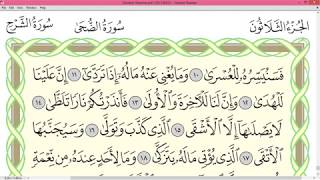 الجُزْءُ الثَّلَاثُونَ سُورَةُ الضُّحَىٰ سُورَةُ الشَّرْحِ
فَسَنُيَسِّرُهُۥ لِلْعُسْرَىٰ ١٠ وَمَا يُغْنِى عَنْهُ مَالُهُۥٓ إِذَا تَرَدَّىٰٓ ١١ إِنَّ عَلَيْنَا
لَلْهُدَىٰ ١٢ وَإِنَّ لَنَا لَلْـَٔاخِرَةَ وَٱلْأُولَىٰ ١٣ فَأَنذَرْتُكُمْ نَارًا تَلَظَّىٰ ١٤
لَا يَصْلَىٰهَآ إِلَّا ٱلْأَشْقَى ١٥ ٱلَّذِى كَذَّبَ وَتَوَلَّىٰ ١٦ وَسَيُجَنَّبُهَا
ٱلْأَتْقَى ١٧ ٱلَّذِى يُؤْتِى مَالَهُۥ يَتَزَكَّىٰ ١٨ وَمَا لِأَحَدٍ عِندَهُۥ مِن نِّعْمَةٍ